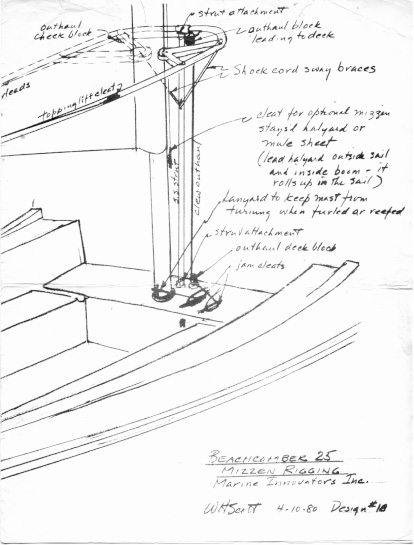 strut attachment
outhaul
cheek block
outhaul block
leading to deck
Shock cord sway braces
leads
topping lift cleat
cleat for optional mizzen
staysl halyard or
mule sheet
(lead halyard outside sail
and inside boom - it
rolls up in the sail)
s.s. strut
clew outhaul
Lanyard to keep mast from
turning when furled or reefed
strut attachment
outhaul deck block
jam cleats
BEACHCOMBER 25
MIZZEN RIGGING
Marine Innovators Inc.
WHScott 4-10-80 Design #18